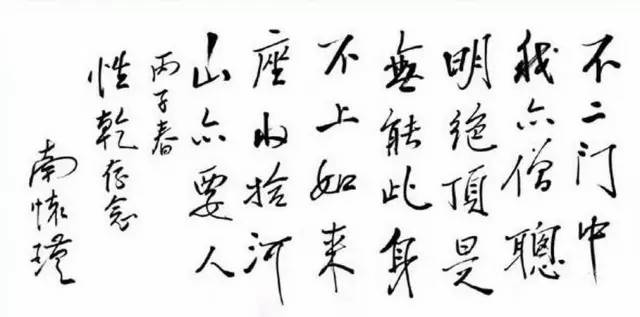 不二门中
我亦僧聰
明绝頂是
無能此身
不上如来
座收拾河
山亦要人
丙子春
性乾存念
南懷瑾